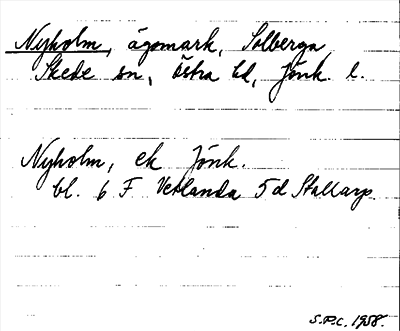 Nyholm, ägomark, Solberga,
Skede sn, Östra hd, Jönk. l.
Nyholm, ek Jönk.
bl. 6 F Vetlanda 5 d Stallarp.
S.P.C. 1958.